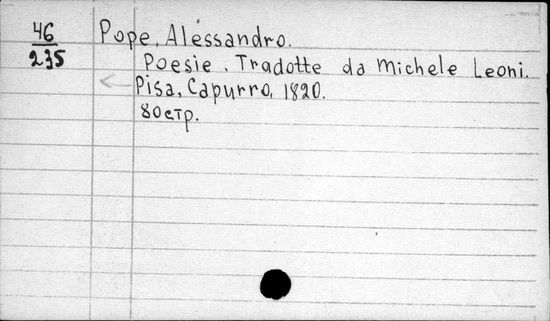 46
235
Pope, Alessandro.
Poesie. Tradotte da Michele Leoni.
Pisa, Capurro, 1820.
80 стр.